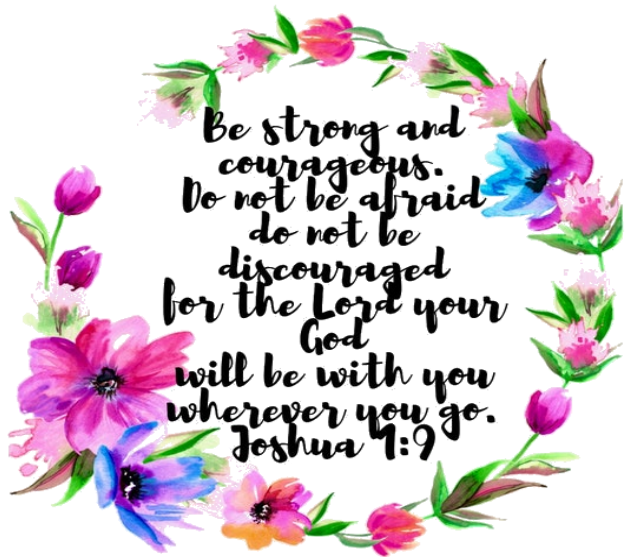 Be strong and
courageous.
Do not be afraid
do not be
discouraged
for the Lord your
God
will be with you
wherever you go.
Joshua 1:9